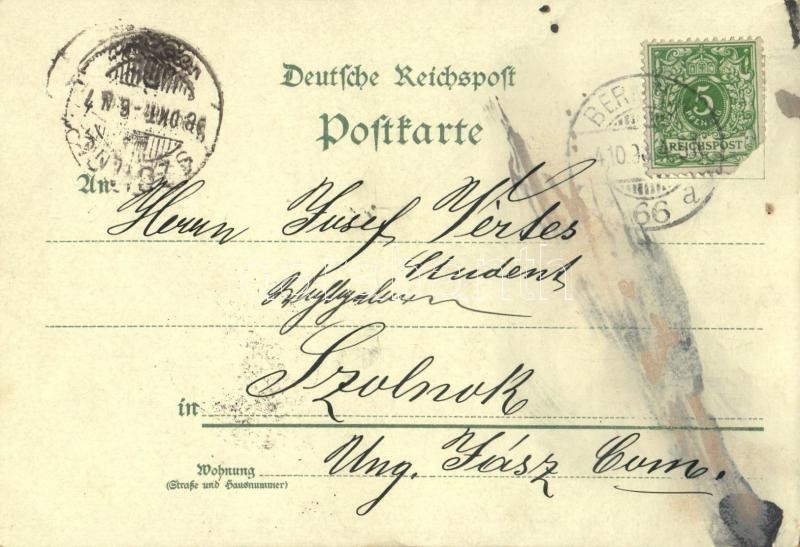 Deutsche Reichspost
Postkarte
An
Herrn Josef Vértes
Student
in Szolnok
Ung. Jász Com.
Wohnung
(Straße und Hausnummer)
5
PFENNIG
REICHSPOST
BER
4.10.9
66 a